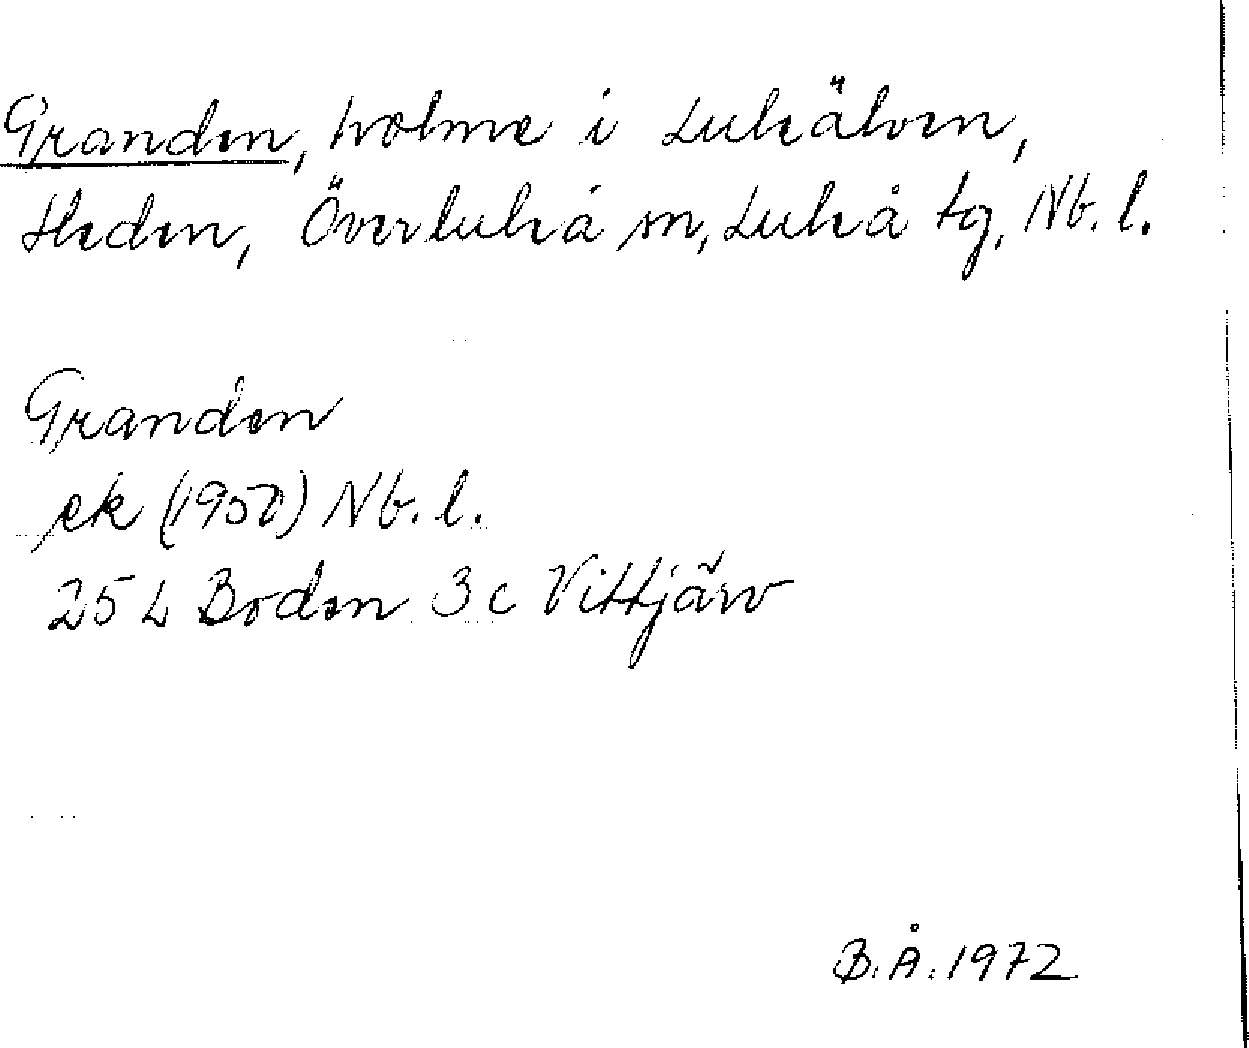 Granden, holme i Luleälven,
Heden, Överluleå sn, Luleå tg, Nb. l.
Granden
ek (1950) Nb. l.
25 L Boden 3 c Vittjärv
B. Å. 1972